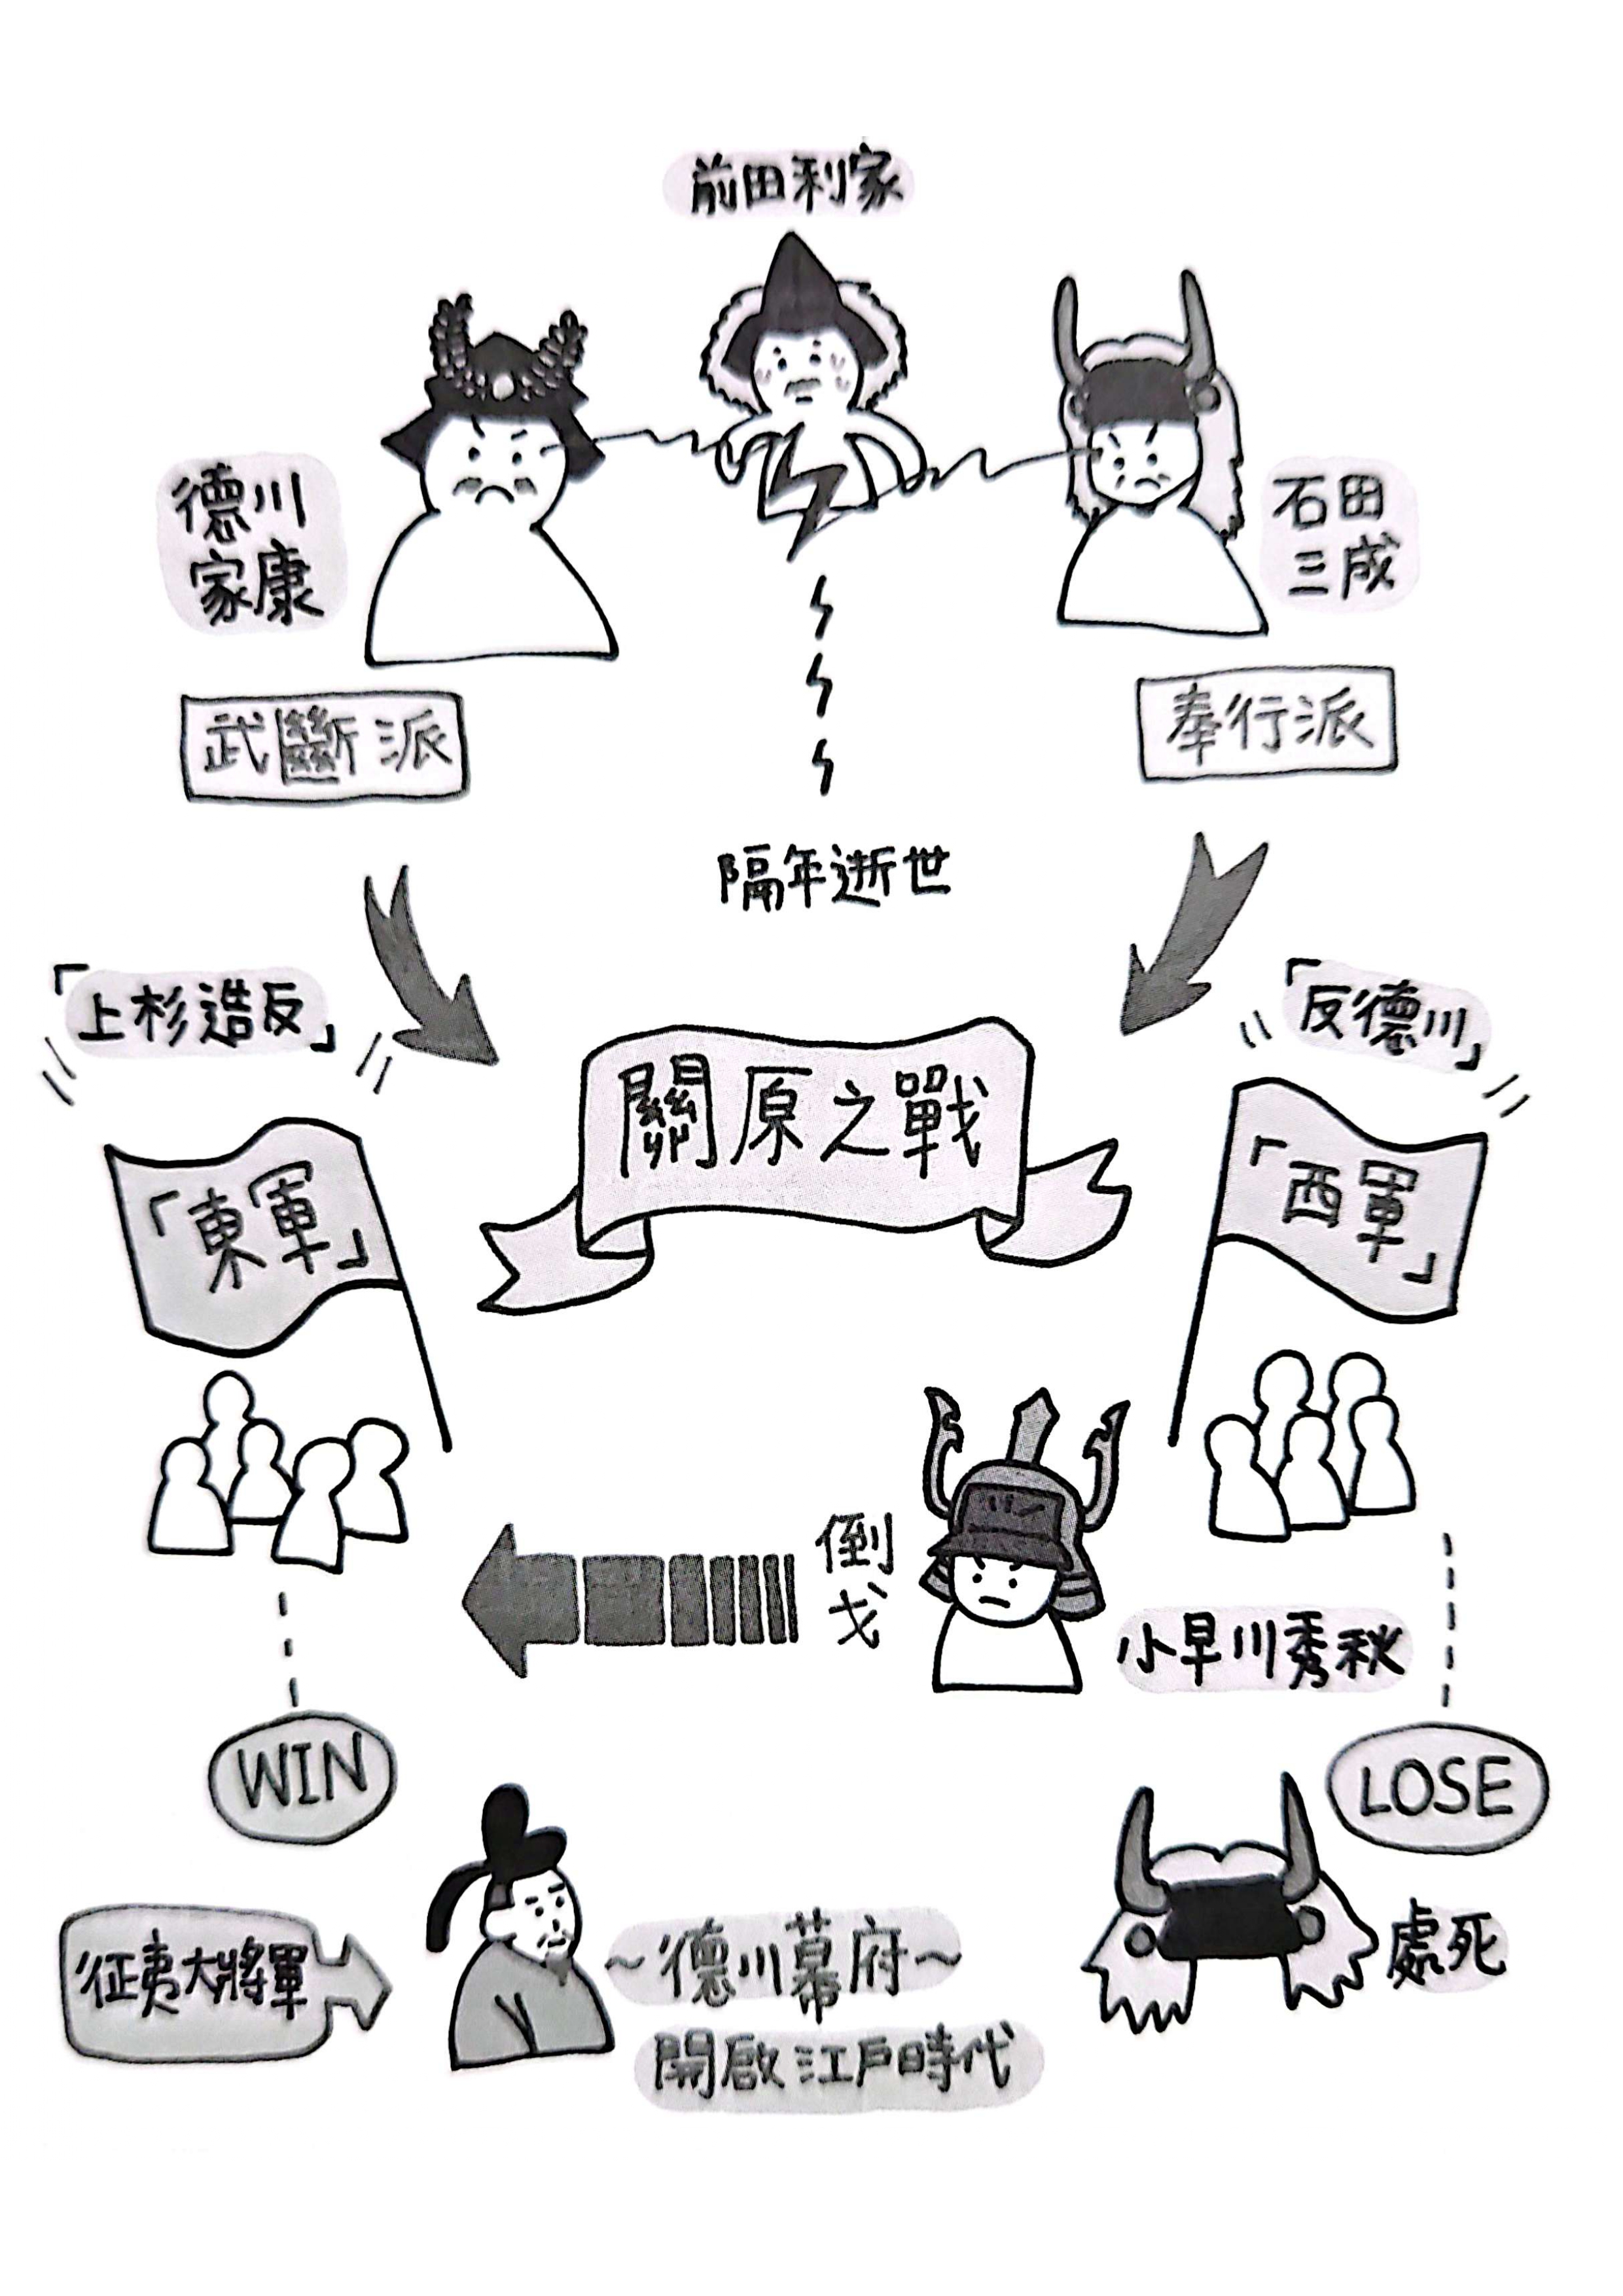 前田利家
德川
家康
石田
三成
武斷派
奉行派
隔年逝世
「上杉造反」
「反德川」
關原之戰
「東軍」
「西軍」
倒
戈
小早川秀秋
WIN
LOSE
征夷大將軍
～德川幕府～
開啟江戶時代
處死